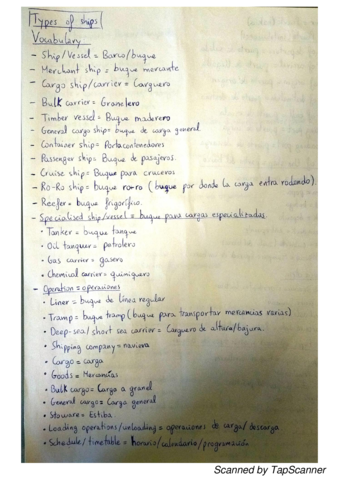 Types of ships
Vocabulary
- Ship/Vessel = Barco/buque
- Merchant ship = buque mercante
- Cargo ship/carrier = Carguero
- Bulk carrier = Granelero
- Timber vessel = Buque maderero
- General cargo ship = buque de carga general
- Container ship = Portacontenedores
- Passenger ship = Buque de pasajeros.
- Cruise ship = Buque para cruceros
- Ro-Ro ship = buque ro-ro (buque por donde la carga entra rodando)
- Reefer = buque frigorífico.
- Specialised ship/vessel = buque para cargas especializadas
• Tanker = buque tanque
• Oil tanquer = petrolero
• Gas carrier = gasero
• Chemical carrier = quimiquero
- Operation = operaciones
• Liner = buque de línea regular
• Tramp = buque tramp (buque para transportar mercancias varias)
• Deep-sea/short sea carrier = Carguero de altura/bajura.
• Shipping company = naviera
• Cargo = carga
• Goods = Mercancías
• Bulk cargo = Carga a granel
• General cargo = Carga general
• Stoware = Estiba
• Loading operations/unloading = operaciones de carga/descarga
• Schedule/timetable = horario/calendario/programación
Scanned by TapScanner